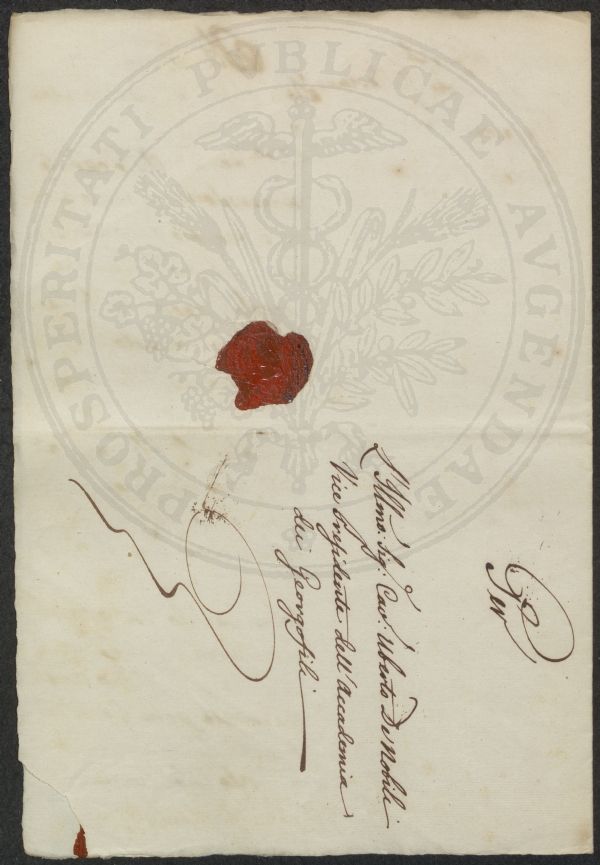 PROSPERITATI PUBLICAE AVGENDAE
Per
L'Illmo: Sig.e Cav: Uberto De Nobili
Vice Presidente dell'Accademia
dei Georgofili